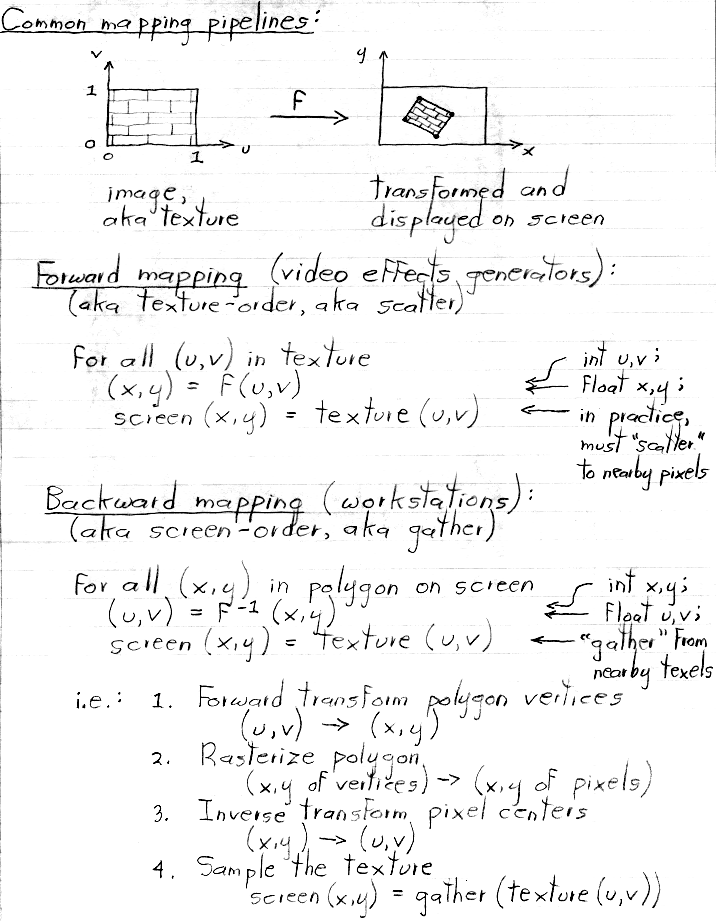 Common mapping pipelines:
v
1
0
0
1
u
F
y
x
image,
aka texture
transformed and
displayed on screen
Forward mapping (video effects generators):
(aka texture-order, aka scatter)
For all (u,v) in texture
(x,y) = F(u,v)
screen (x,y) = texture (u,v)
int u,v;
Float x,y;
in practice,
must "scatter"
to nearby pixels
Backward mapping (workstations):
(aka screen-order, aka gather)
For all (x,y) in polygon on screen
(u,v) = F⁻¹ (x,y)
screen (x,y) = texture (u,v)
int x,y;
Float u,v;
"gather" From
nearby texels
i.e.: 1. Forward transform polygon vertices
(u,v) → (x,y)
2. Rasterize polygon
(x,y of vertices) → (x,y of pixels)
3. Inverse transform pixel centers
(x,y) → (u,v)
4. Sample the texture
screen (x,y) = gather (texture (u,v))